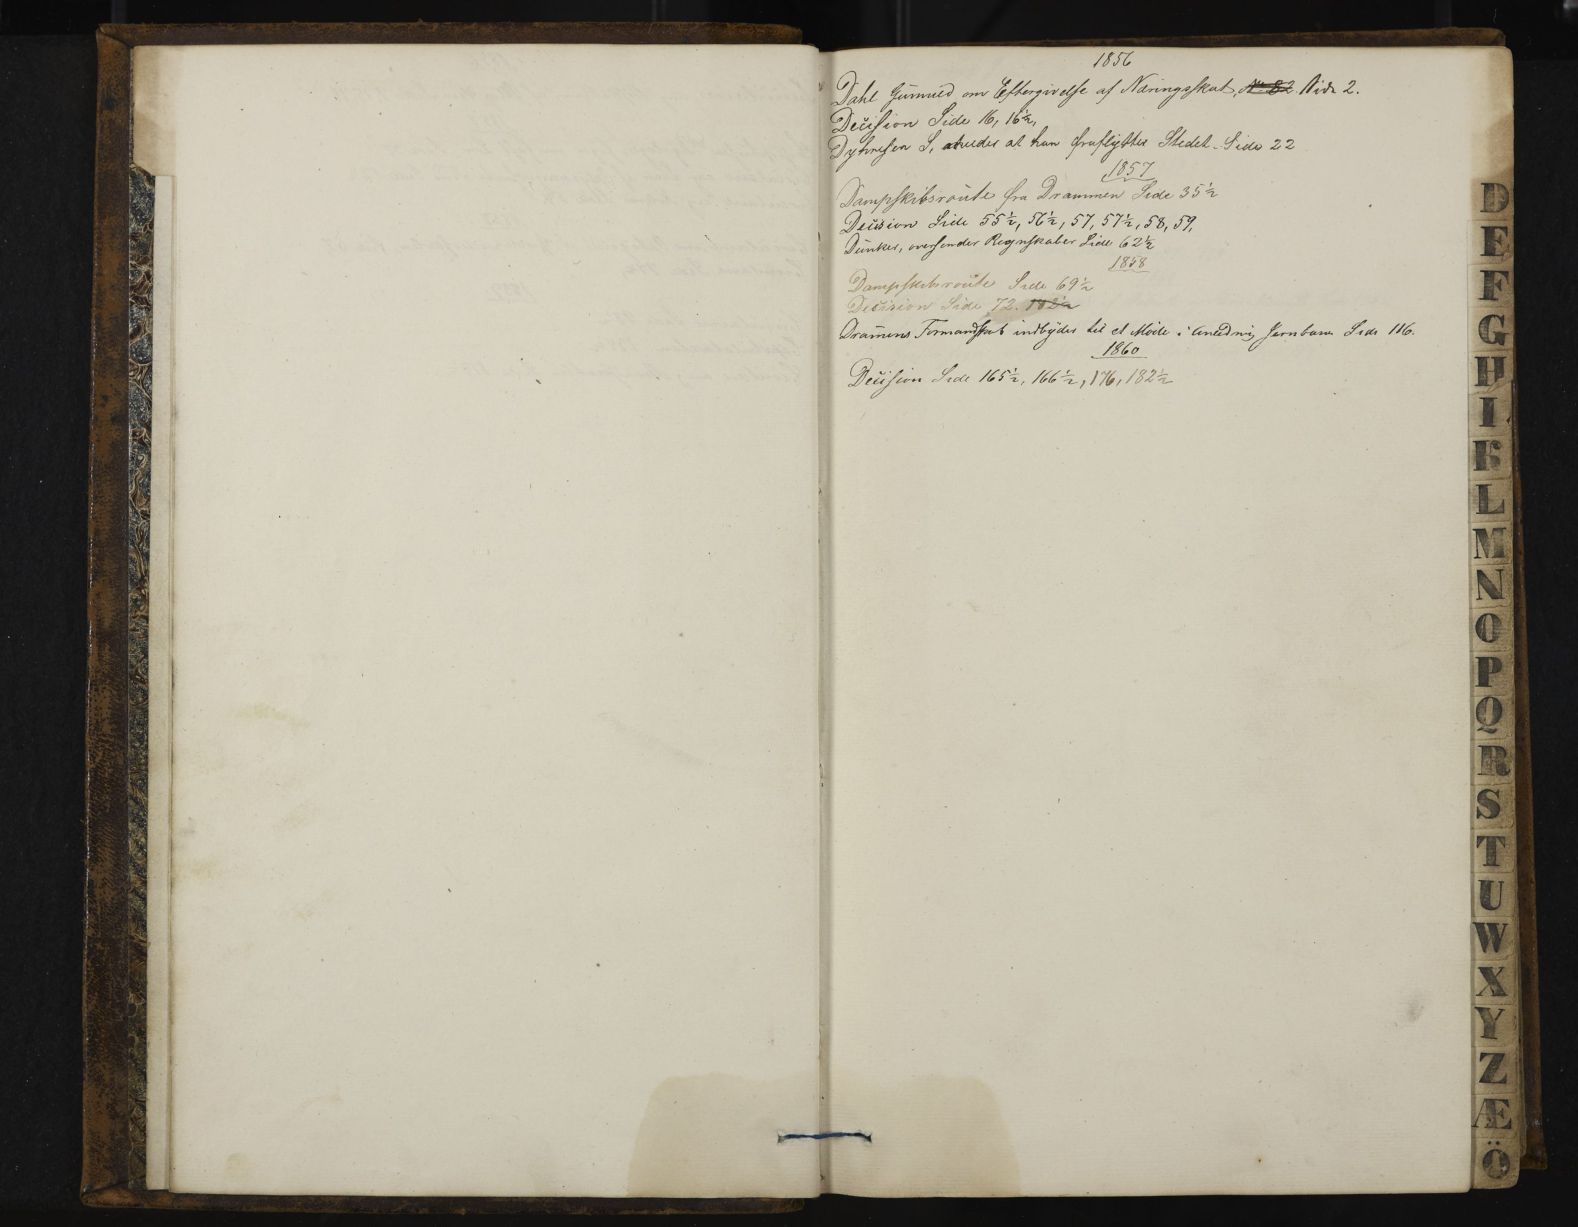 1856
Dahl Gunnuld om Eftergivelse af Næringsskat, No 82 Side 2.
Decision Side 16, 16½,
Dyhresen S, at han fraflytter Stedet. Side 22
1857
Dampskibsroute fra Drammen Side 35½
Decision Side 55½, 56½, 57, 57½, 58, 59,
Dunker, oversender Regnskaber Side 62½
1858
Dampskibsroute Side 69½
Decision Side 72. 182½
Dramens Formandskab indbyder til et Møde i Anledning Jernbane Side 116.
1860
Decision Side 165½, 166½, 176, 182½
D
E
F
G
H
I
K
L
M
N
O
P
Q
R
S
T
U
W
X
Y
Z
Æ
Ö